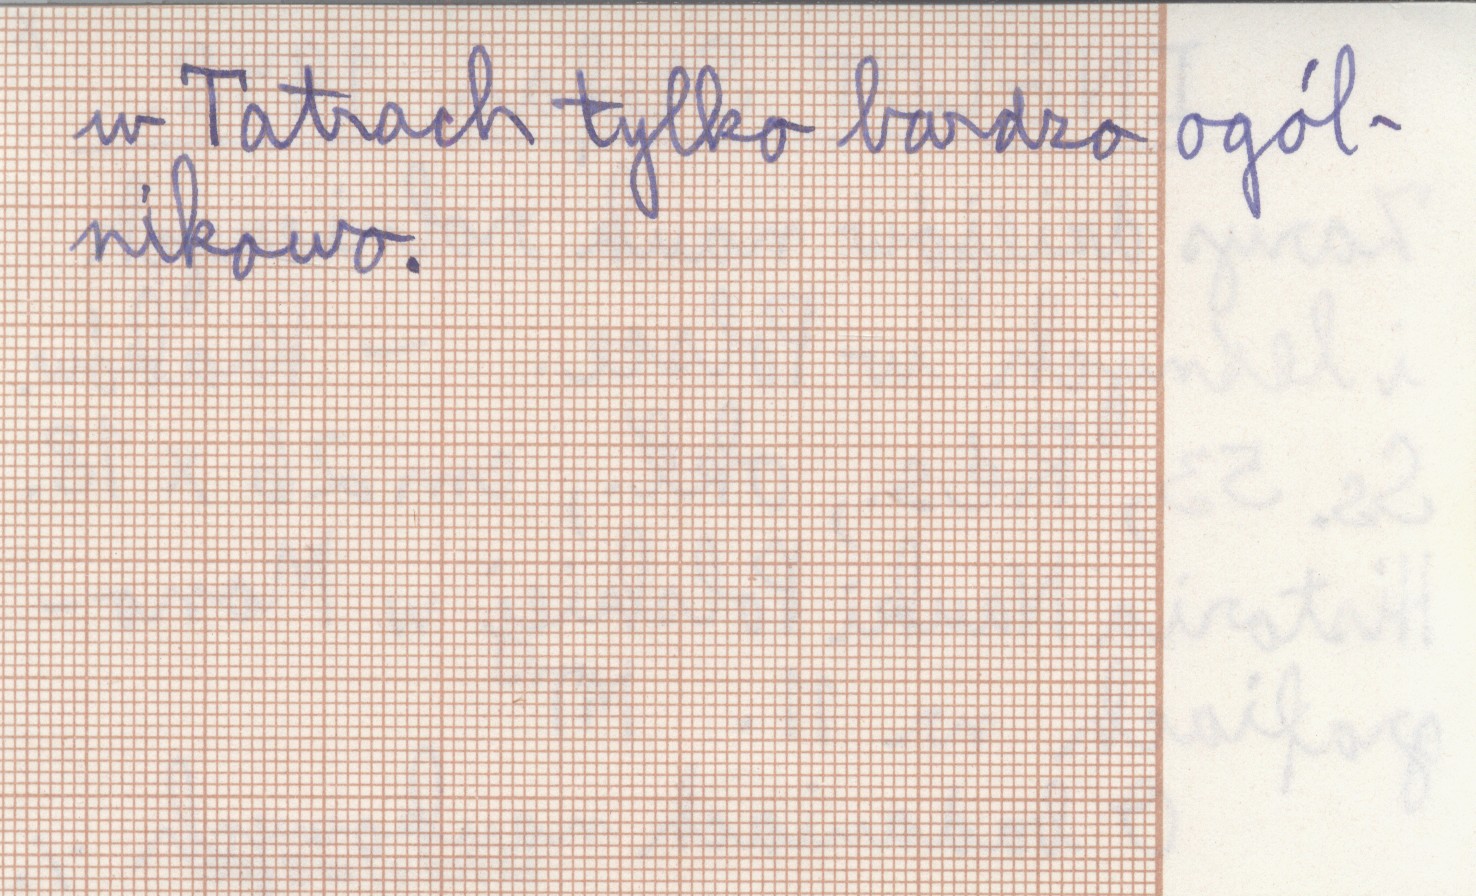 w Tatrach tylko bardzo ogól-
nikowo.